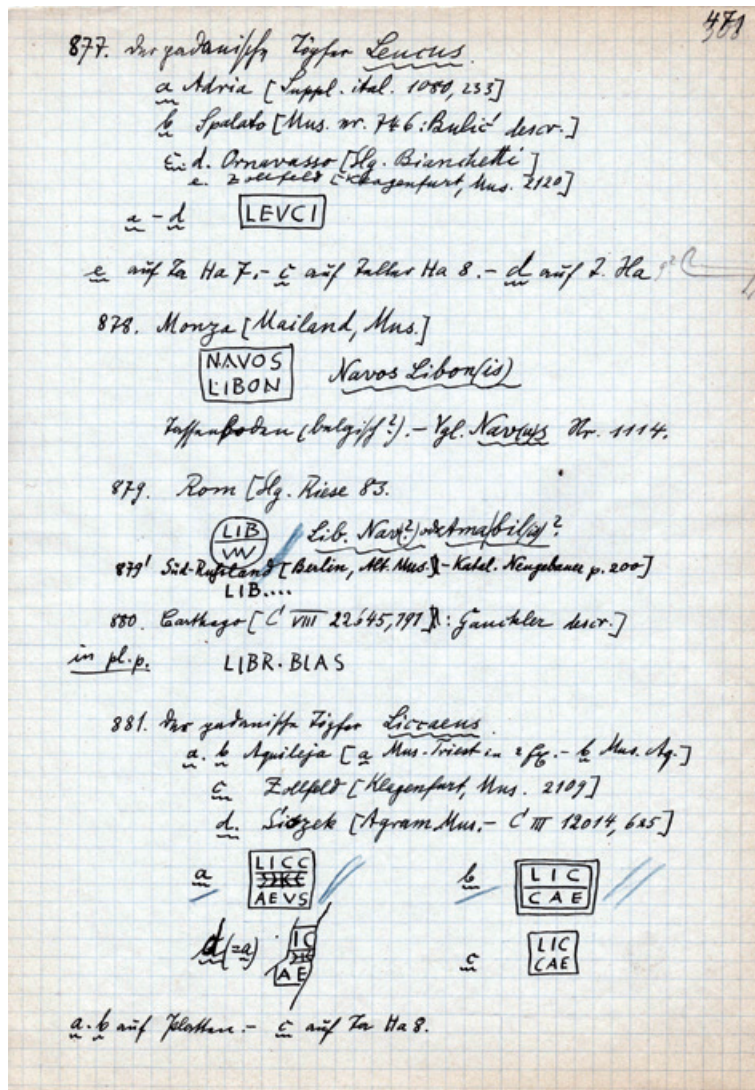 471
877. Der padanische Töpfer Leucus.
a Adria [Suppl. ital. 1080, 233]
b Spalato [Mus. nr. 746: Bulić descr.]
c. d. Ornavasso [Slg. Bianchetti]
e. Zollfeld [Klagenfurt, Mus. 2120]
a - d LEVCI
e auf Ta Ha 7. - c auf Teller Ha 8. - d auf T. Ha
878. Monza [Mailand, Mus.]
NAVOS
LIBON
Navos Libon(is)
Tassenboden (belgisch?). - Vgl. Nav(u)s Nr. 1114.
879. Rom [Slg. Riese 83.
LIB
Lib. Nav(?) od. Amabil(is)?
879' Süd-Rußland [Berlin, Alt. Mus. - Katal. Neugebauer p. 200]
LIB....
880. Carthago [C VIII 22645, 191: Gauckler descr.]
in pl. p. LIBR. BIAS
881. Der padanische Töpfer Liccaeus.
a. b Aquileja [a Mus. Triest in 2 - b Mus. Aq.]
c Zollfeld [Klagenfurt, Mus. 2109]
d. Siszek [Agram. Mus. - C III 12014, 625]
a LICC
AEVS
b LIC
CAE
d (=a) IC
AE
c LIC
CAE
a. b auf Platten. - c auf Ta Ha 8.